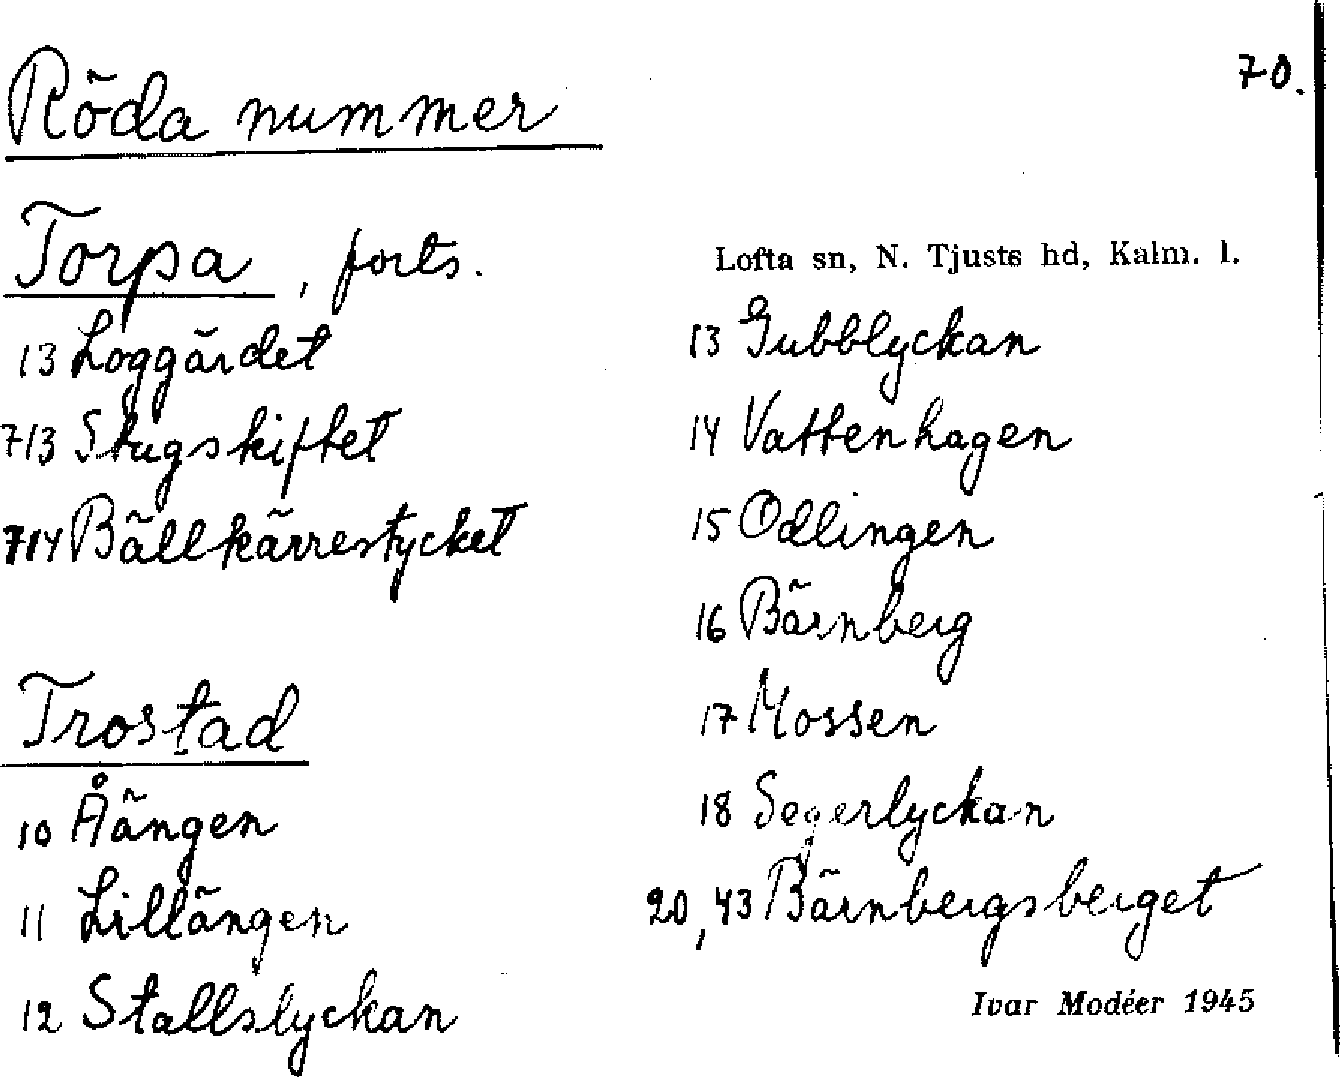 70.
Röda nummer
Torpa, forts.
13 Loggärdet
713 Stugskiftet
714 Bällkärrestycket
Trostad
10 Åängen
11 Lillängen
12 Stallslyckan
Lofta sn, N. Tjusts hd, Kalm. l.
13 Gubblyckan
14 Vattenhagen
15 Odlingen
16 Bärnberg
17 Mossen
18 Segerlyckan
20, 43 Bärnbergsberget
Ivar Modéer 1945